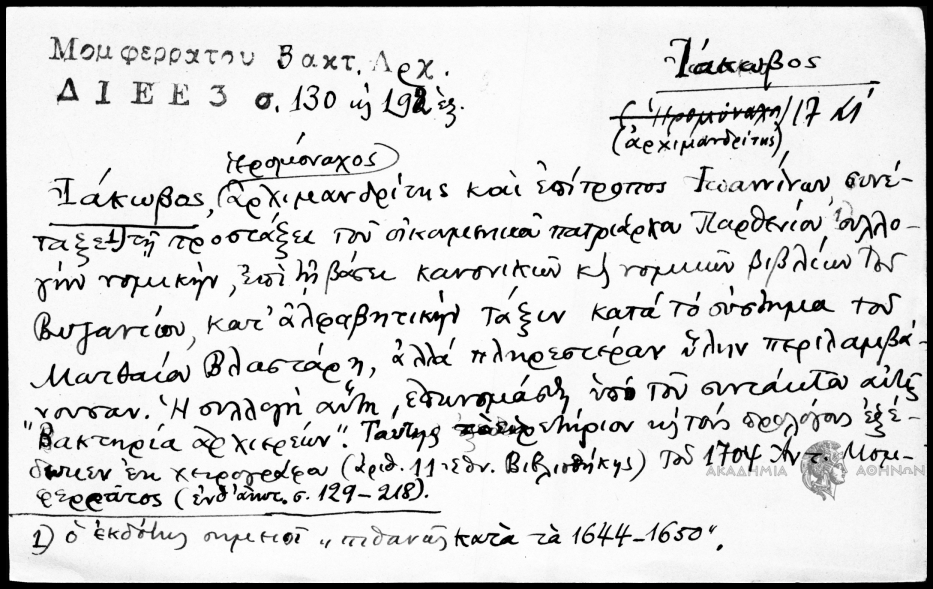 Μομφερρατου Βακτ. Αρχ.
ΔΙΕΕ 3 σ. 130 κ 192 ἑξ.
Ἰάκωβος
(Ἱερομόναχος) 17 Α´
(ἀρχιμανδρίτης)
ἱερομόναχος
Ἰάκωβος, (ἀρχιμανδρίτης καὶ ἐπίτροπος Ἰωαννίνων συνέ-
ταξε 1) τῇ προστάξει τοῦ οἰκουμενικοῦ πατριάρχου Παρθενίου συλλο-
γὴν νομικήν, ἐπὶ τῇ βάσει κανονικῶν κ νομικῶν βιβλίων τοῦ
Βυζαντίου, κατ' ἀλφαβητικὴν τάξιν κατὰ τὸ σύστημα τοῦ
Ματθαίου Βλαστάρη, ἀλλὰ πληρεστέραν ὕλην περιλαμβά-
νουσαν. Ἡ συλλογὴ αὕτη, ἐπωνομάσθη ὑπὸ τοῦ συντάκτου αὐτῆς
"Βακτηρία ἀρχιερέων". Ταύτης εὑρετήριον κ τοὺς προλόγους ἐξέ-
δωκεν ἐκ χειρογράφου (ἀριθ. 11 Ἐθν. Βιβλιοθήκης) τοῦ 1704 Ἀντ. Μομ-
φερρᾶτος (ἐνθ' ἀνωτ. σ. 129-218).
1) ὁ ἐκδότης σημειοῖ "πιθανῶς κατὰ τὰ 1644-1650".
ΑΚΑΔΗΜΙΑ ΑΘΗΝΩΝ